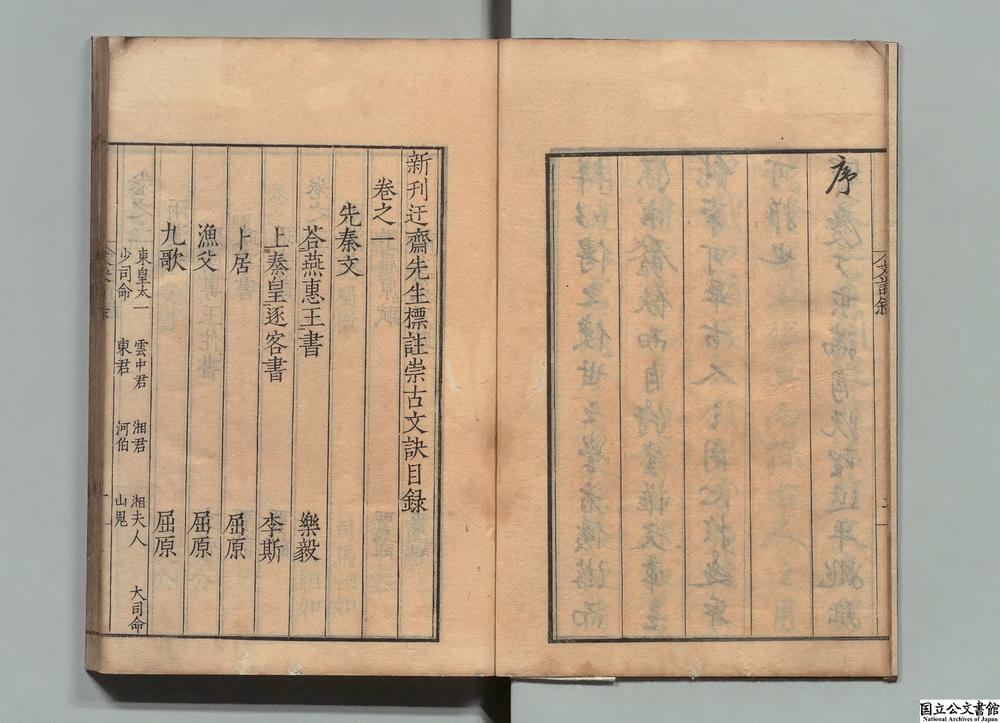 序
新刊迂齋先生標註崇古文訣目録
卷之一
先秦文
荅燕惠王書 樂毅
上秦皇逐客書 李斯
卜居 屈原
漁父 屈原
九歌 屈原
東皇太一 雲中君 湘君 湘夫人 大司命
少司命 東君 河伯 山鬼
国立公文書館
National Archives of Japan